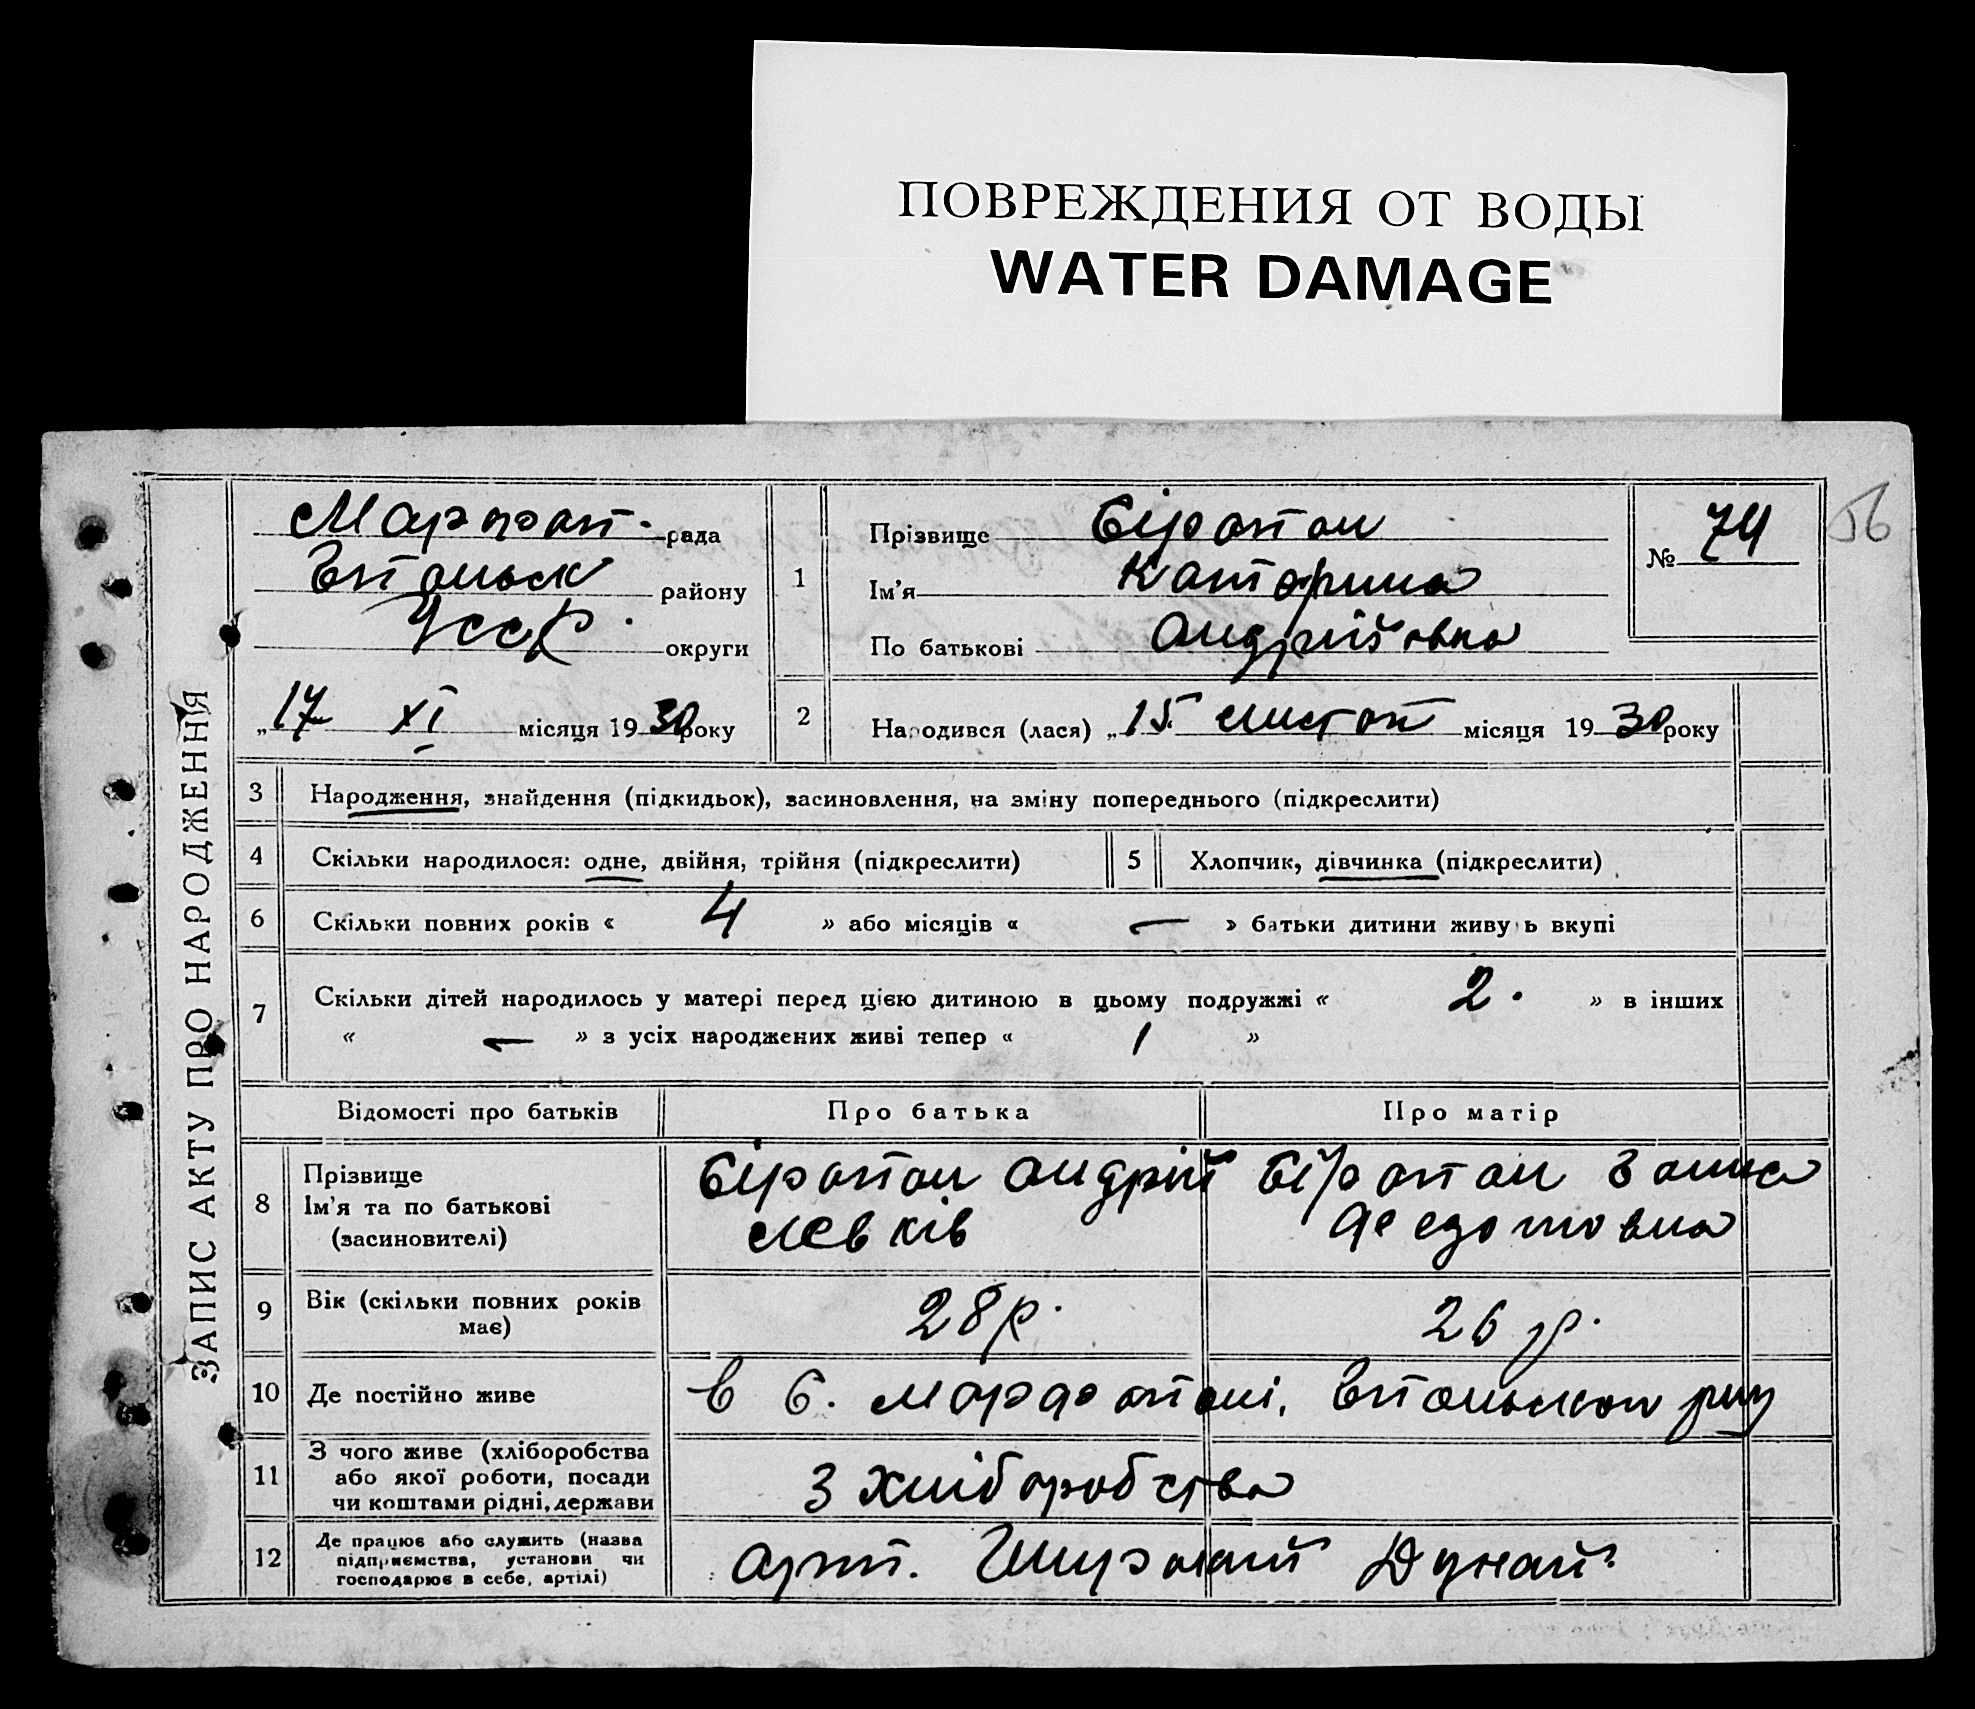 ПОВРЕЖДЕНИЯ ОТ ВОДЫ
WATER DAMAGE
56
ЗАПИС АКТУ ПРО НАРОДЖЕННЯ
рада
району
УССР. округи
„17 XI місяця 1930 року
1
Прізвище
Ім'я Катерина
По батькові Андріївна
№ 74
2 Народився (лася) „15 листоп місяця 1930 року
3 Народження, знайдення (підкидьок), засиновлення, на зміну попереднього (підкреслити)
4 Скільки народилося: одне, двійня, трійня (підкреслити)
5 Хлопчик, дівчинка (підкреслити)
6 Скільки повних років « 4 » або місяців « — » батьки дитини живуть вкупі
7 Скільки дітей народилось у матері перед цією дитиною в цьому подружжі « 2. » в інших
« — » з усіх народжених живі тепер « 1 »
Відомості про батьків Про батька Про матір
8 Прізвище
Ім'я та по батькові
(засиновителі)
Андрій
Левків
Федотовна
9 Вік (скільки повних років
має)
28 р. 26 р.
10 Де постійно живе
в с.
11 З чого живе (хліборобства
або якої роботи, посади
чи коштами рідні, держави
З хліборобства
12 Де працює або служить (назва
підприємства, установи чи
господарює в себе, артілі)
арт. Широкий Дунай